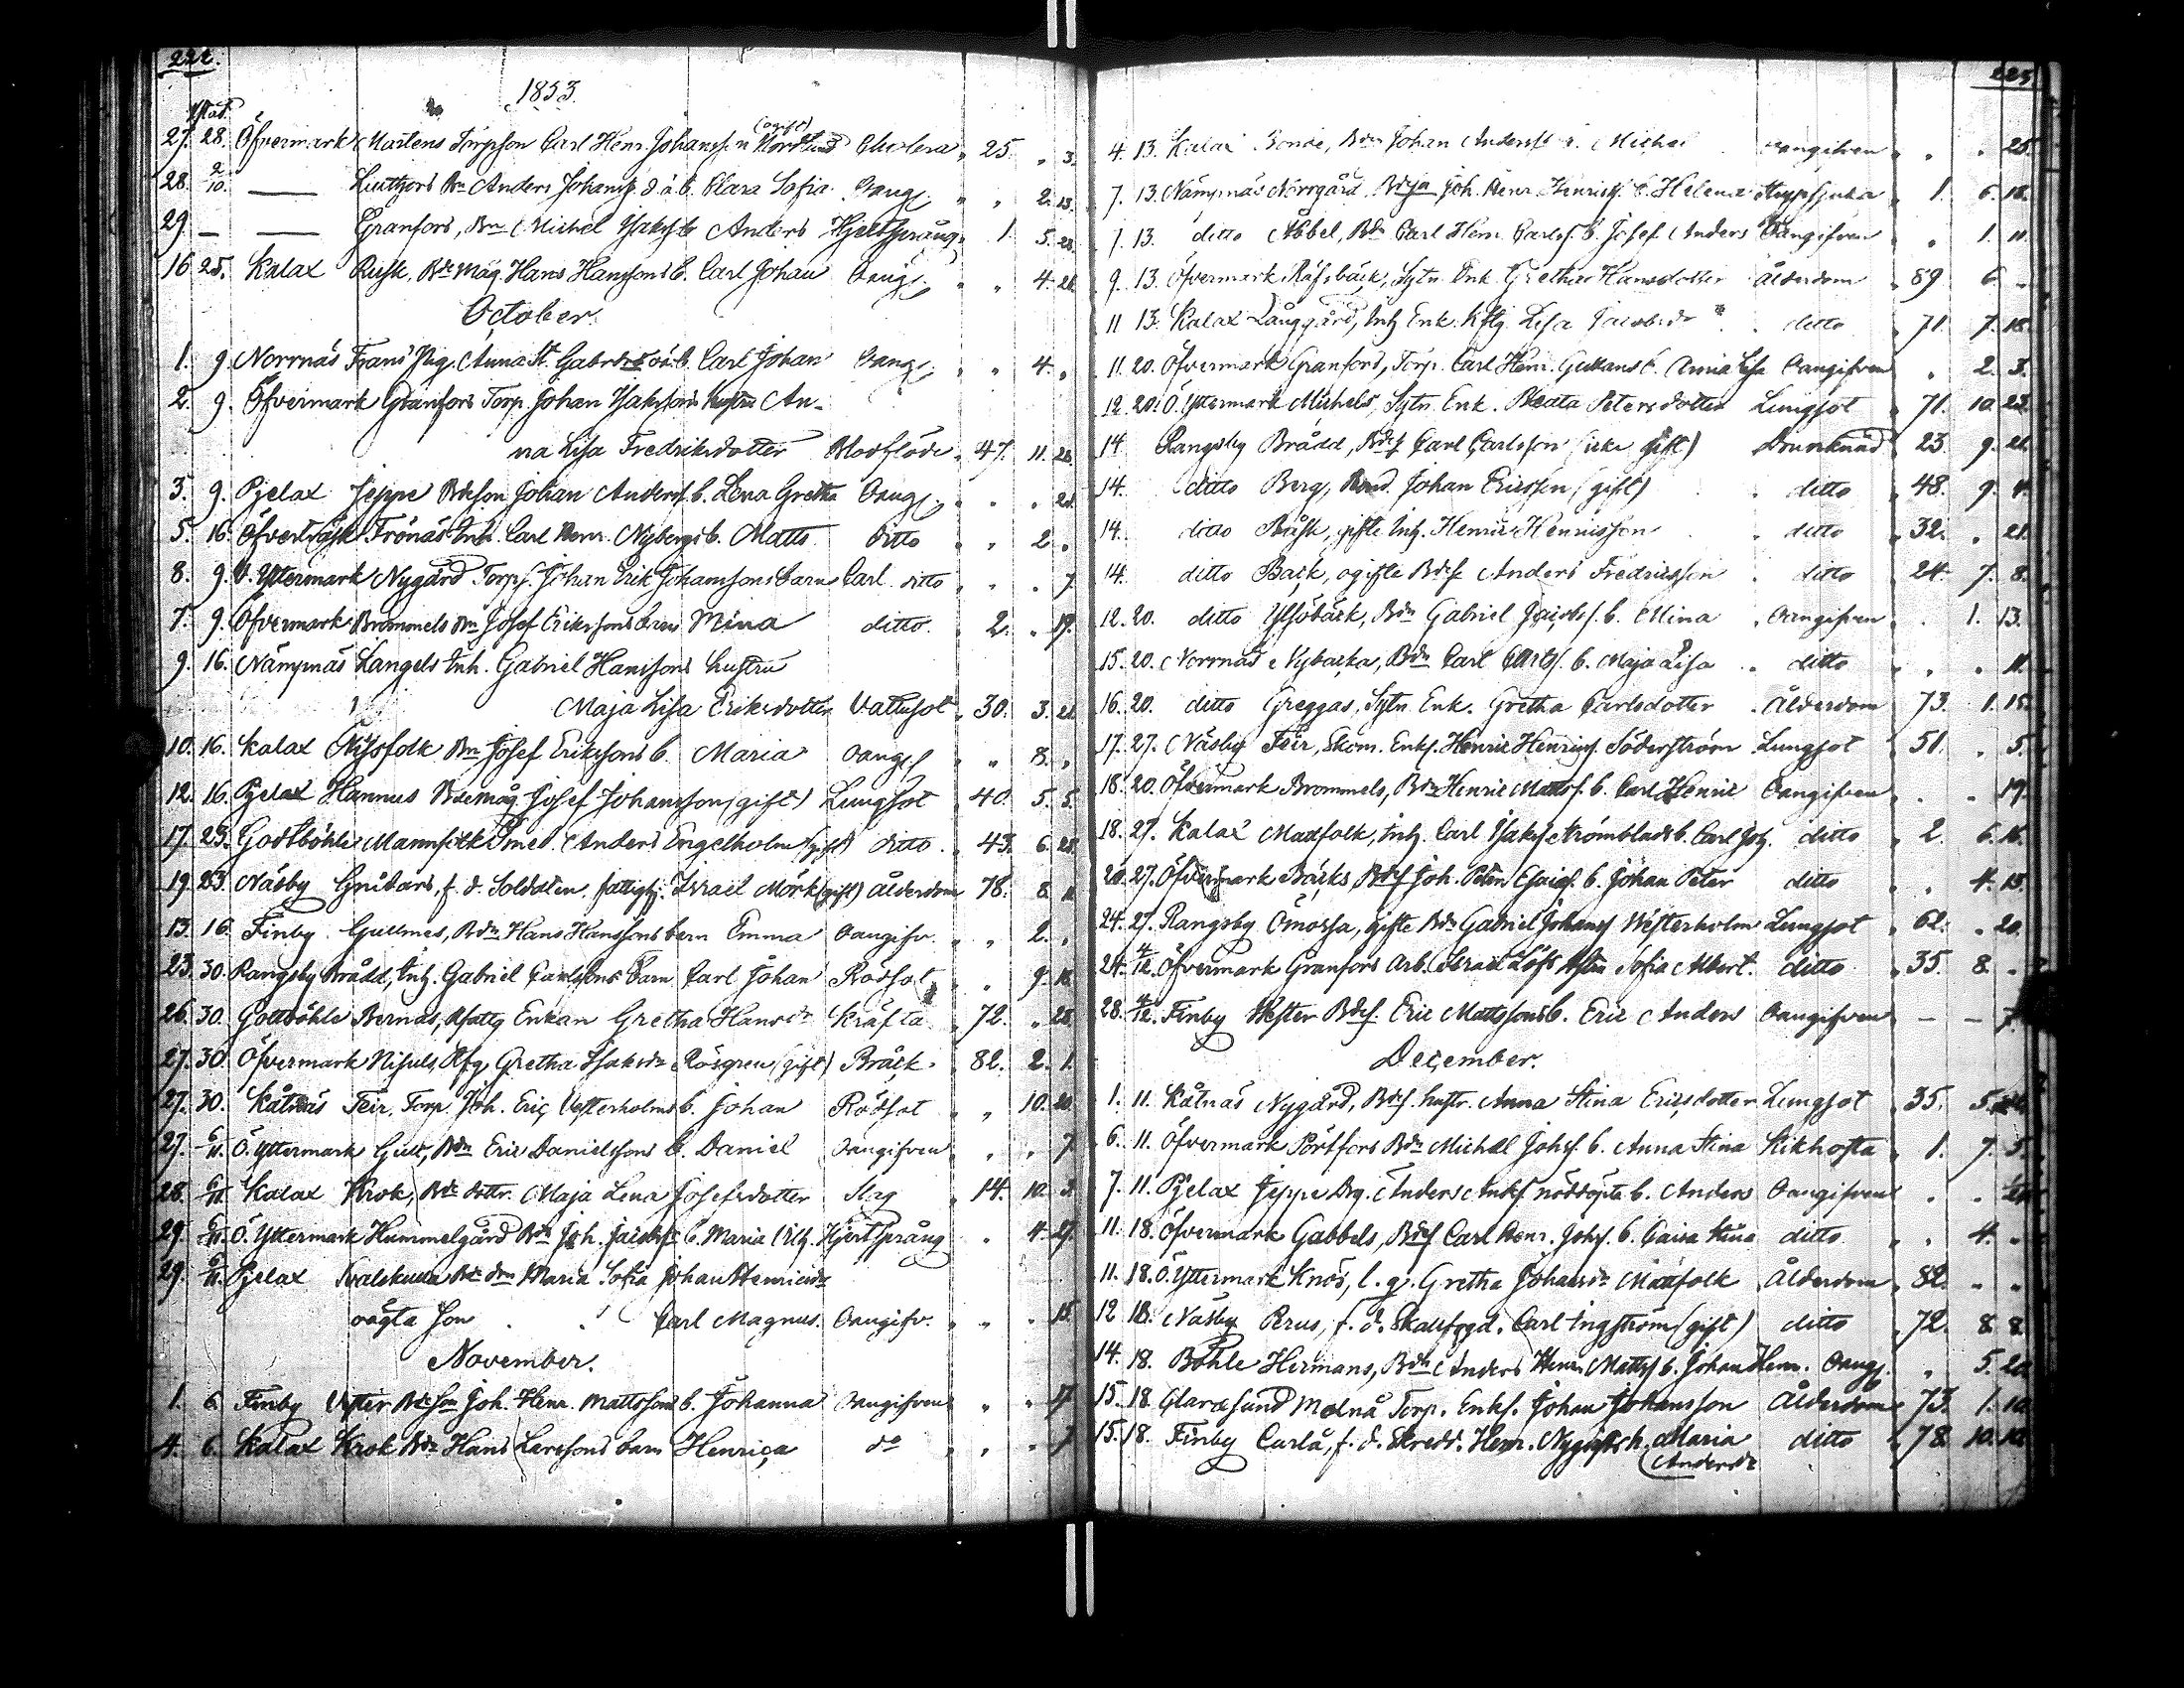 222.
1853.
27. 28. Öfvermark Mårtens Torpson Carl Henr. Johansson Nordlund (ogift) Cholera " 25. " 3.
28. 2/10. — Luthfors Bn Anders Johanss. d.ä. b. Clara Sofia Oang. " " 2. 13.
29. — — Granfors, Bn Michel Isakss b. Anders Hjertsprång " 1. 5. 28.
16 25. Kalax Rusk, Bde Måg Hans Hanssons b. Carl Johan Oang. " " 4. 26.
October.
1. 9 Norrnäs Frans Pig. Anna St. Gabrsdr oä. b. Carl Johan Oang. " " 4. "
2. 9. Öfvermark Granfors Torp. Johan Isakssons hustru An-
na Lisa Fredriksdotter Blodflöde " 47. 11. 26.
3. 9. Pjelax Jeppe Bdeson Johan Anderss. b. Lena Gretha Oang. " " " 21.
5. 16. Öfverträsk Frönäs Inh. Carl Henr. Nybergs b. Matts ditto " " 2. "
8. 9. Ö. Yttermark Nygård Torps. Johan Erik Johanssons barn Carl ditto " " " 7.
7. 9. Öfvermark Brommels Bn Josef Erikssons barn Mina ditto. " 2. " 19.
9. 16. Nämpnäs Langels Inh. Gabriel Hanssons hustru
Maja Lisa Eriksdotter Vattusot " 30. 3. 21.
10. 16. Kalax Nissfolk Bn Josef Erikssons b. Maria Oang. " " 8. "
12. 16. Pjelax Hannus Bdemåg Josef Johansson (gift) Lungsot " 40. 5. 5.
17. 23. Gottböhle Mannfolk Smed. Anders Engelholm (gift) ditto. " 43. 6. 28.
19. 23. Näsby Gridars, f. d. Soldaten. fattighj. Israel Mörk (gift) Ålderdom 78. 8. 11.
13. 16. Finby Gullmes, Bdn Hans Hanssons barn Emma Oangifv. " " 2. "
23. 30. Rangsby Brådd, Inh. Gabriel Carlssons barn Carl Johan Rödsot " " 9. 18.
26. 30. Gottböhle Bernas, Rfattig Enkan Gretha Hansdr Kräfta " 72. " 28.
27. 30. Öfvermark Nisuls, Rfg. Gretha Isaksdr Rosgren (gift) Bråck. " 82. 2. 1.
27. 30. Kåtnäs Teir, Torp. Joh. Eric Vesterholms b. Johan Rödsot " " 10. 20.
27. 6/11. Ö. Yttermark Gull, Bdn Eric Danielssons b. Daniel Oangifven " " " 7
28. 6/11. Kalax Krok, Bde dottr. Maja Lena Josefsdotter Slag " 14. 10. 3.
29. 6/11. Ö. Yttermark Hummelgård Bdn Joh. Jacobss. b. Maria Ulg. Hjertsprång " 4. 27.
29. 6/11. Pjelax Maria Sofia Johan Henricsdr
oägta Son Carl Magnus. Oangifv. " " " 15.
November.
1. 6. Finby Vester Bdeson Joh. Henr. Mattssons b. Johanna Oangifven " " " 17
4. 6. Kalax Krok Bdn Hans Larssons barn Henrica do " " " 7
225.
4. 13. Kalax Bonde, Bdn Johan Anderss b. Michel Oangifven " " " 25.
7. 13. Nämpnäs Norrgård, Joh. Henr. Henricss. b. Helena 1. 6. 18.
7. 13. ditto Åbbel, Bdn Carl Henr. Carlss. b. Josef Anders Oangifven " " 1. 11.
9. 13. Öfvermark Räfsbäck, Sytn. Enk. Gretha Hansdotter Ålderdom " 89. 6. "
11 13. Kalax Långgård, Inh Enk. Lisa Jacobsdr ditto " 71. 7. 18.
11. 20. Öfvermark Granfors, Torp. Carl Henr. b. Anna Lisa Oangifven " 2. 3.
12. 20. Ö. Yttermark Michels, Sytn. Enk. Beata Petersdotter Lungsot " 71. 10. 23.
14 Rangsby Brådd, Bdes. Carl Carlsson (icke gift) Drunknad 23. 9. 21.
14. ditto Berg, Bond. Johan Ericsson (gift) ditto " 48. 9. 4.
14. ditto Båsk, gifte Inh. Henric Henricsson ditto " 32. " 21.
14. ditto Back, ogifte Bdes. Anders Fredricsson ditto " 24. 7. 8.
12. 20. ditto Ytsöbäck, Bdn Gabriel Jacobs. b. Mina Oangifven " . 1. 13.
15. 20. Norrnäs Nybacka, Bdn Carl Carlss. b. Maja Lisa ditto " " " 11.
16. 20. ditto Greggas, Sytn Enk. Gretha Carlsdotter Ålderdom 73. 1. 15.
17. 27. Näsby Teir, Skom. Enkl. Henric Henricss. Söderström Lungsot " 51. " 5.
18. 20. Öfvermark Brommels, Bdn Henric Mattss. b. Carl Henric Oangifven . . 19.
18. 27. Kalax Madfolk, Inh. Carl Isakss Strömblads b. Carl Joh. ditto " 2. 6. 16.
20. 27. Öfvermark Bäcks, Bdes Joh. Peter Esaiss. b. Johan Peter ditto " " 4. 15.
24. 27. Rangsby Ömossa, gifte Bdn Gabriel Johanss Westerholm Lungsot " 62. " 20.
24. 4/12. Öfvermark Granfors Arb. Israel Löfs Hstru Sofia Albert. ditto " 35. 8. "
28. 4/12. Finby Wester Bdes. Eric Mattssons b. Eric Anders Oangifven — — 7.
December.
1. 11. Kåtnäs Nygård, Bdes. hustr. Anna Stina Ericsdotter Lungsot " 35. 5.
6. 11. Öfvermark Pörtfors Bdn Michel Johss. b. Anna Stina Kikhosta " 1. 7. 5.
7. 11. Pjelax Jeppe Drg. Anders Andss. nöddöpta b. Anders Oangifven " "
11. 18. Öfvermark Gabbels, Bdes Carl Henr. Johss. b. Caisa Stina ditto " " 4. "
11. 18. Ö. Yttermark Knös, l. g. Gretha Johansdr Madfolk Ålderdom " 82. " "
12 18. Näsby Perus, f. d. Skallfogd. Carl Ingström (gift) ditto " 72. 8. 8.
14. 18. Böhle Hermans, Bdn Anders Henr. Mattss b. Johan Henr. Oang. " 5. 20.
15. 18 Glaxesund Molnå Torp. Enkl. Johan Johansson Ålderdom " 73. 1. 10.
15. 18. Finby Carlå, f. d. Skredd. Henr. h. Maria ditto " 78. 10. 10.
Andersdr